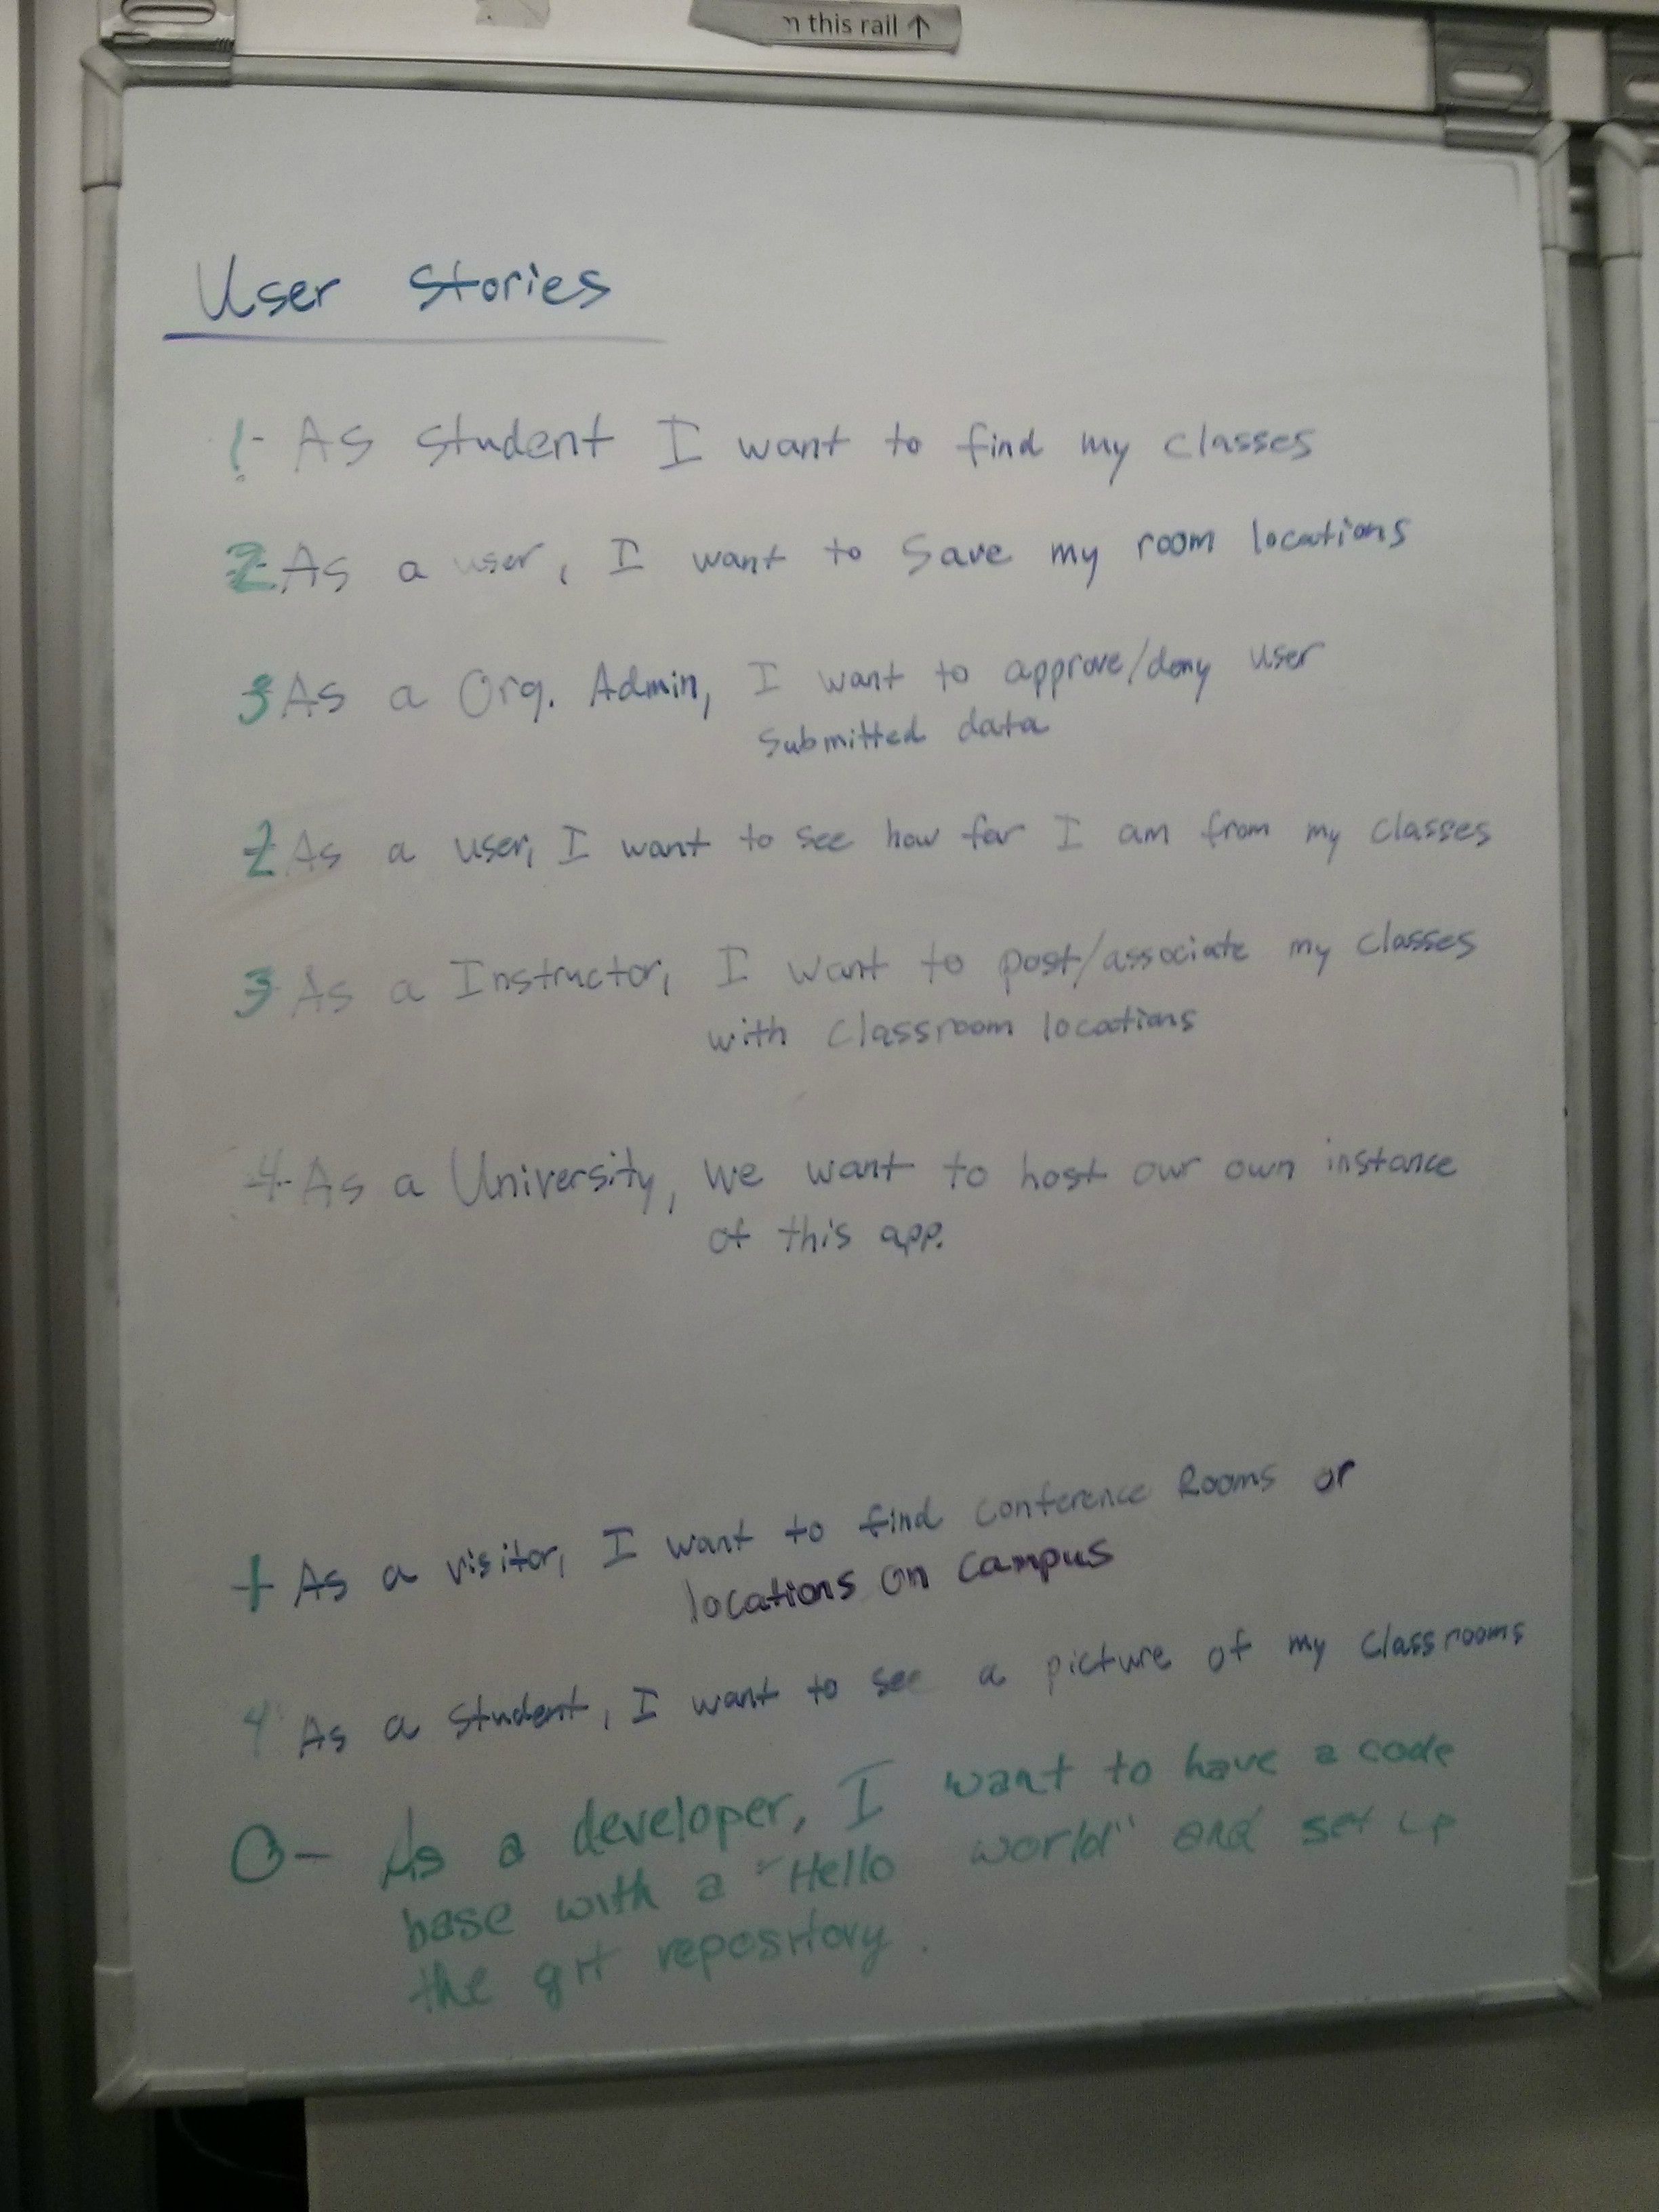 n this rail ↑
User Stories
1- As student I want to find my classes
2- As a user, I want to save my room locations
3- As a Org. Admin, I want to approve/deny user
submitted data
2- As a user, I want to see how far I am from my classes
3- As a Instructor, I want to post/associate my classes
with classroom locations
4- As a University, we want to host our own instance
of this app.
1- As a visitor, I want to find conference Rooms or
locations on campus
4- As a student, I want to see a picture of my classrooms
0- As a developer, I want to have a code
base with a "Hello world" and set up
the git repository.